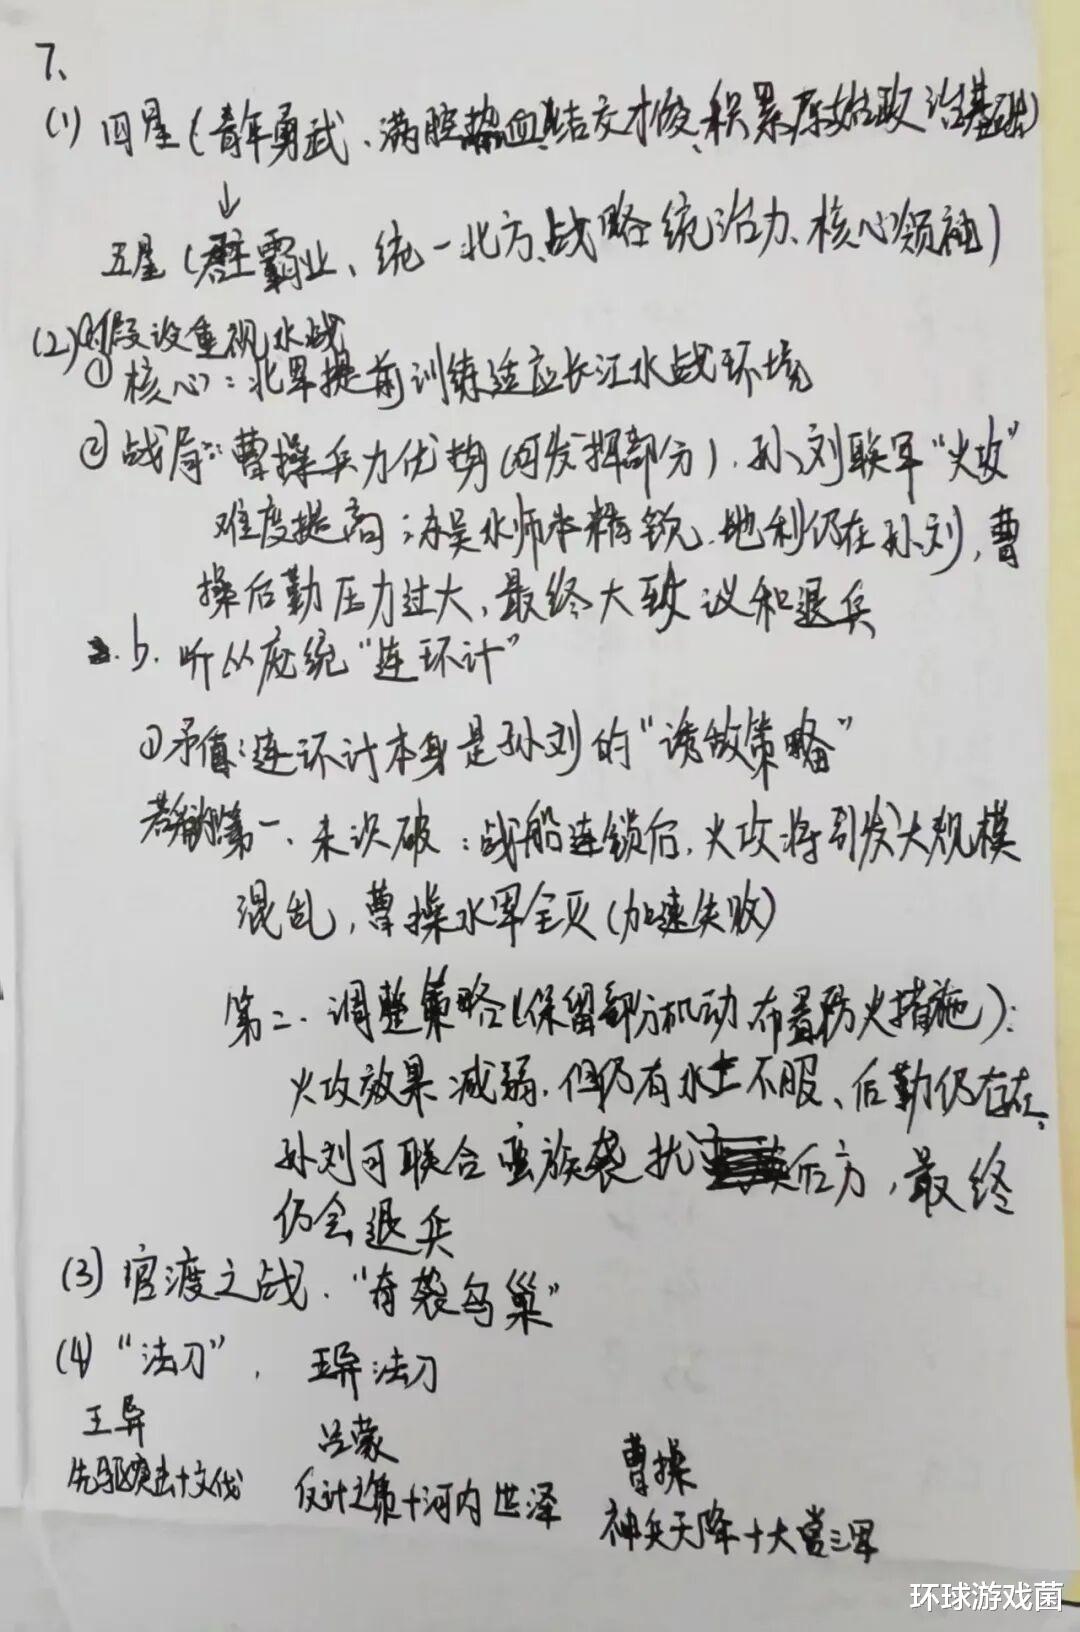 7、
(1) 四星(青年勇武、满腔热血、结交才俊、积累原始政治基础)
↓
五星(霸业、统一北方、战略统治力、核心领袖)
(2) 假设重视水战
① 核心:北军提前训练适应长江水战环境
② 战局:曹操兵力优势(可发挥部分),孙刘联军“火攻”
难度提高;东吴水师本精锐,地利仍在孙刘,曹
操后勤压力过大,最终大致议和退兵
b. 听从庞统“连环计”
①矛盾:连环计本身是孙刘的“诱敌策略”
第一、未识破:战船连锁后,火攻将引发大规模
混乱,曹操水军全灭(加速失败)
第二、调整策略(保留部分机动 布置防火措施):
火攻效果减弱,但仍有水土不服、后勤仍存在,
孙刘可联合蛮族袭扰后方,最终
仍会退兵
(3) 官渡之战、“奇袭乌巢”
(4) “法刀”, 王异法刀
王异 吕蒙 曹操
先驱突击+文伐 仪计之策+河内世泽 神兵天降+大赏三军
环球游戏菌